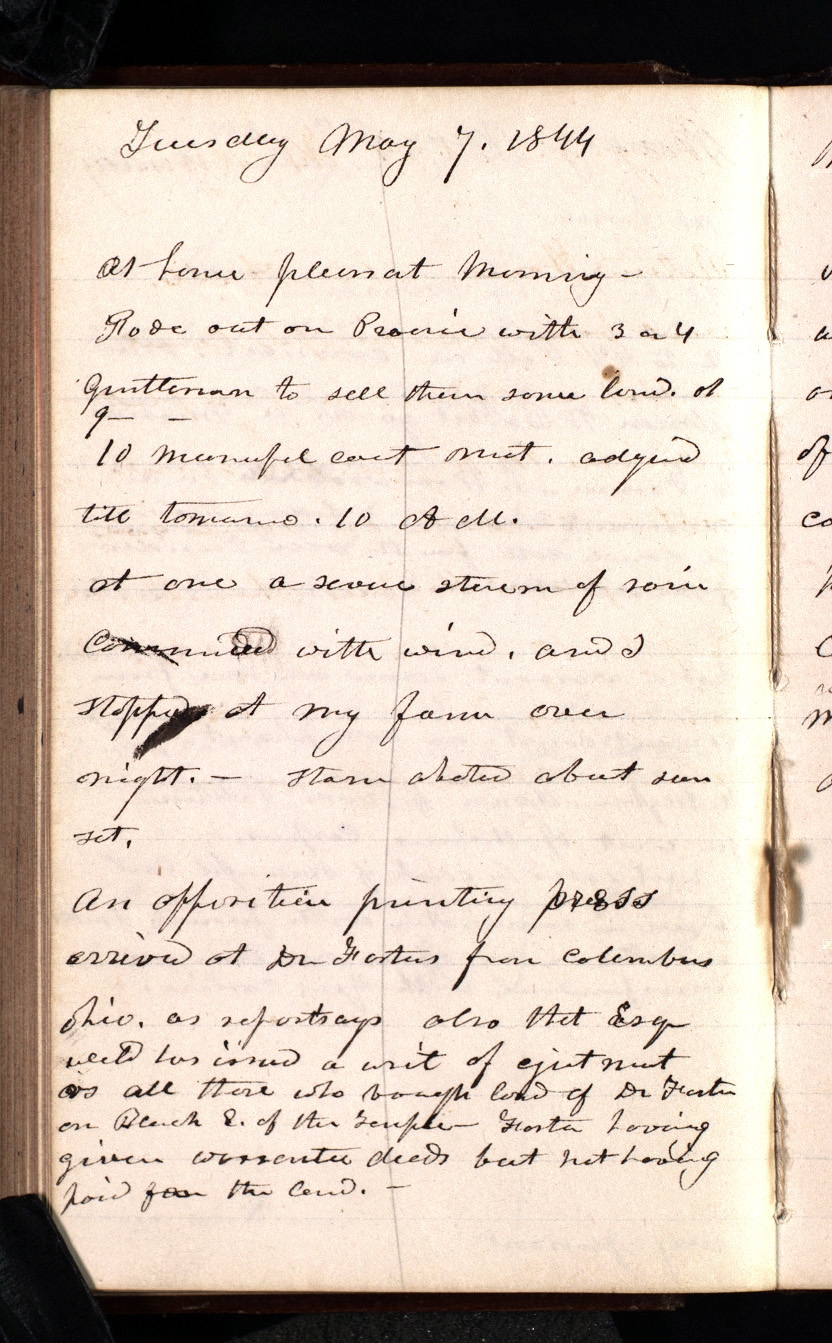 Tuesday May 7. 1844
At home pleasat Morning -
Rode out on Prairie with 3 or 4
gentleman to sell them some land. at
9- -
10 municipl cout met. adgend
till tomarro. 10 A M.
at one a seveere storem of rain
with wind. and I
stopped at my farm over
night. - starm abated about sun
set.
An opposition printing press
arrived at Dr Fosters from Colembus
ohio. as reportsays also that Esqr
wells has issued a writ of ejectment
all those who bough land of Dr Foster
on Block E. of the Temple - Foster having
given warrantee deeds but not having
paid for the land. -